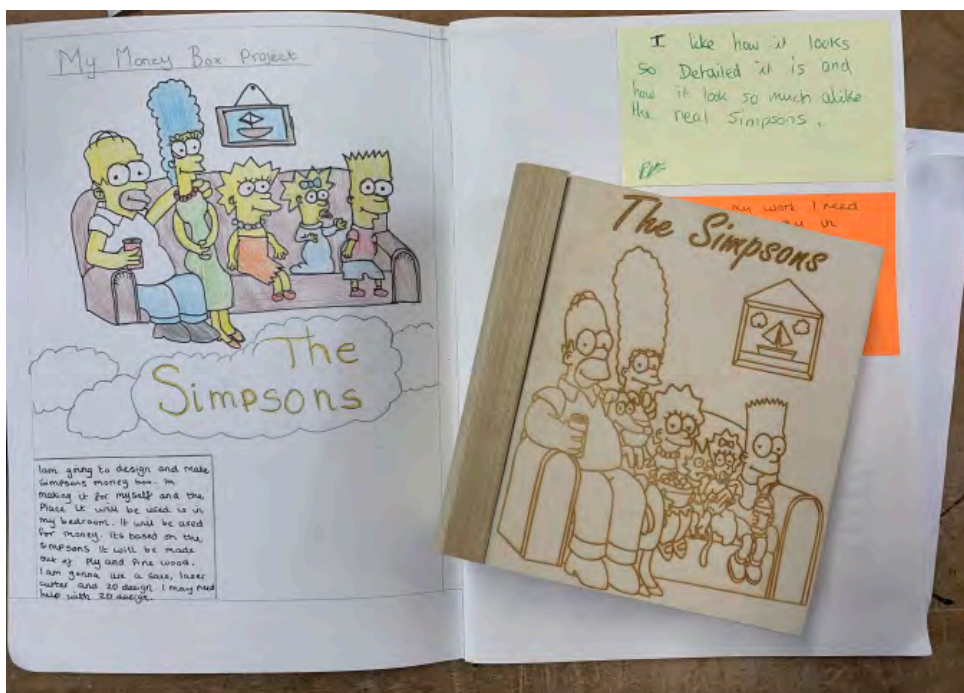 My Money Box Project
The
Simpsons
Iam going to design and make
Simpsons money box. Im
making it for myself and the
Place it will be used is in
my bedroom. It will be used
for money. Its based on the
Simpsons it will be made
out of Ply and Pine wood.
I am gonna use a saw, laser
cutter and 2D design. I may need
help with 2D design.
I like how it looks
so Detailed it is and
how it look so much alike
the real Simpsons.
my work I need
in
The Simpsons